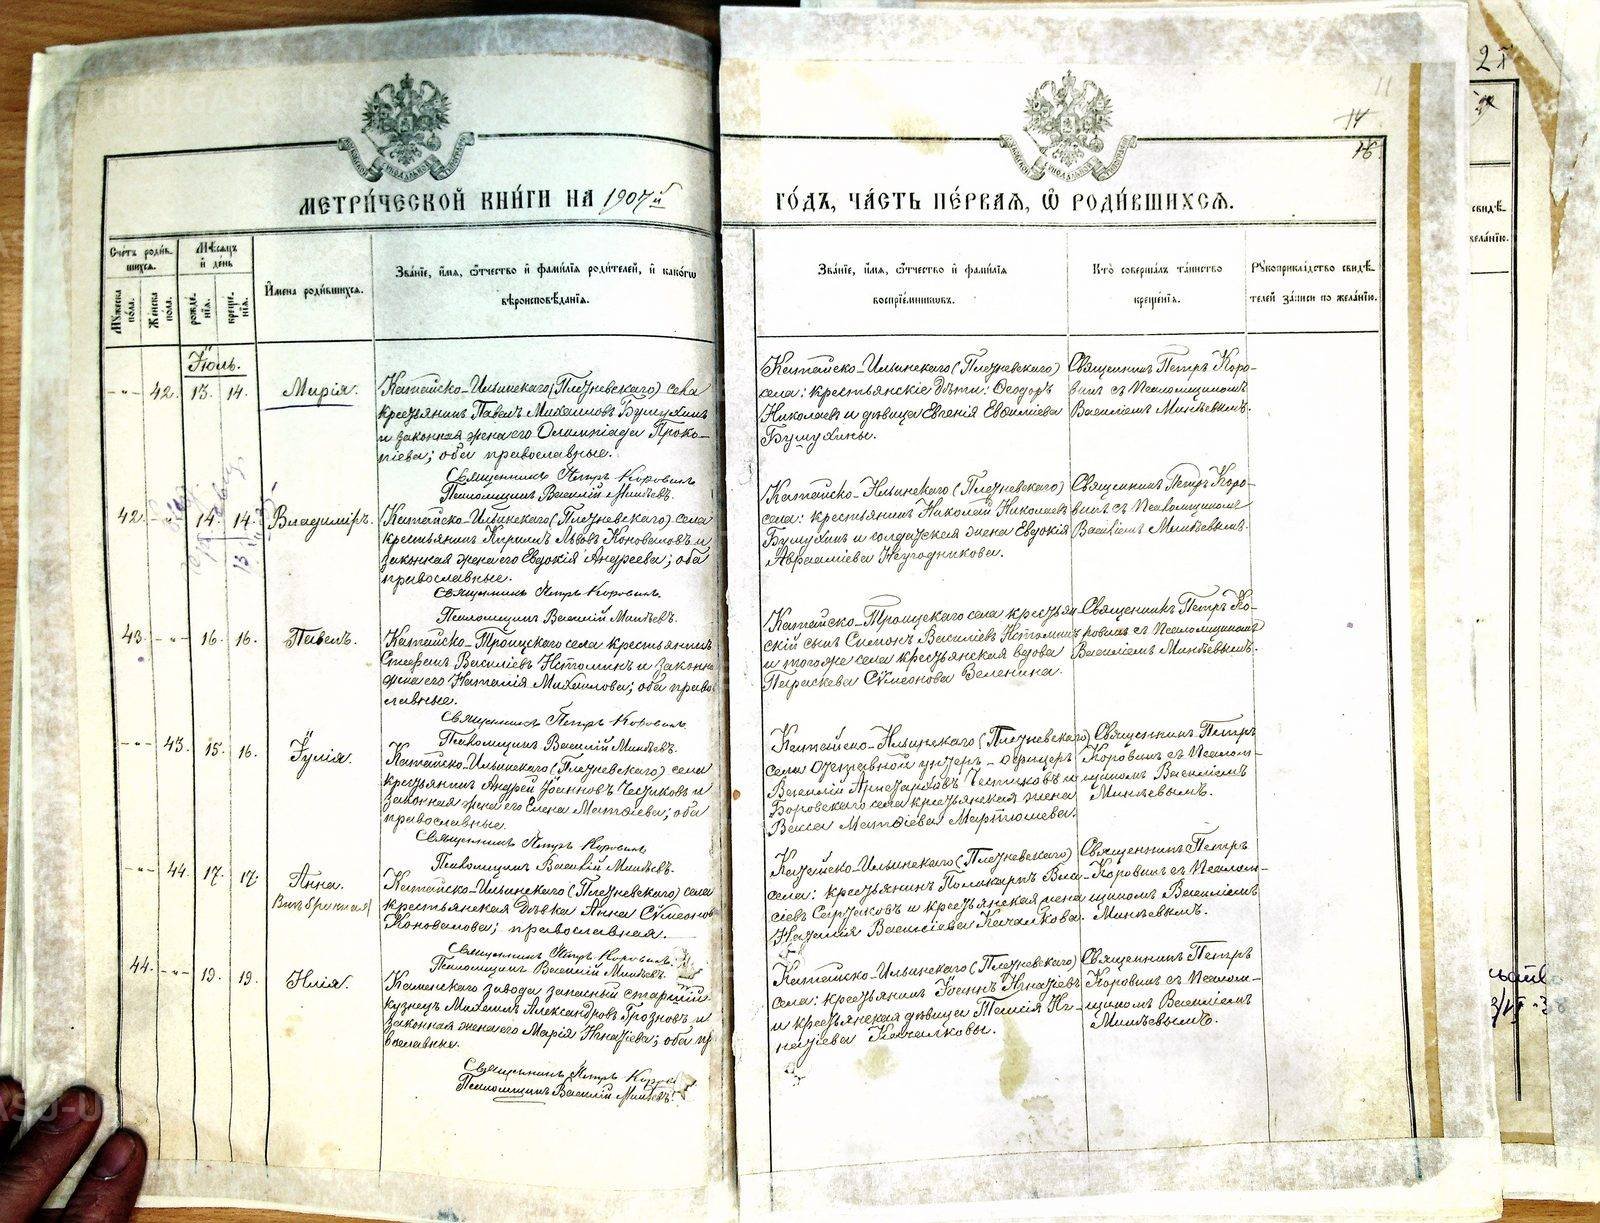 МЕТРИ́ЧЕСКОЙ КНИ́ГИ НА 1907й
ГО́ДЪ, ЧА́СТЬ ПЕ́РВАЯ, Ѿ РОДИ́ВШИХСЯ.
Сче́тъ роди́в-
шихся.
Му́жеска по́ла.
Же́нска по́ла.
Мѣ́сяцъ
и де́нь
рожде́-
нїя.
креще́-
нїя.
Имена роди́вшихся.
Зва́нїе, и́мя, ѻ́тчество и фами́лїя роди́телей, и како́гѡ
вѣроисповѣ́данїя.
Зва́нїе, и́мя, ѻ́тчество и фами́лїя
воспрїе́мниковъ.
Кто̀ соверша́лъ та́инство
креще́нїя.
Рꙋкоприкла́дство свидѣ́-
телей за́писи по жела́нїю.
Іюль.
-"- 42. 13. 14. Марія.
Катайско-Ильинскаго (Плузневскаго) села
крестьянинъ Павелъ Михаиловъ
и законная жена его Олимпіада Проко-
піева; оба православные.
Священникъ Петръ Коровинъ
Псаломщикъ Василій Минѣевъ.
Катайско-Ильинскаго (Плузневскаго)
села: крестьянскіе дѣти: Ѳеодоръ
Николаевъ и дѣвица Евгенія Евѳиміева
Священникъ Петръ Коро-
винъ съ Псаломщикомъ
Василіемъ Минѣевымъ.
42. -"- 14. 14. Владиміръ.
Катайско-Ильинскаго (Плузневскаго) села
крестьянинъ Кириллъ Львовъ Коноваловъ и
законная жена его Евдокія Андреева; оба
православные.
Священникъ Петръ Коровинъ.
Псаломщикъ Василій Минѣевъ.
Катайско-Ильинскаго (Плузневскаго)
села: крестьянинъ Николай Николаевъ
и солдатская жена Евдокія
Авраміева
Священникъ Петръ Коро-
винъ съ Псаломщикомъ
Василіемъ Минѣевымъ.
43. -"- 16. 16. Павелъ.
Катайско-Троицкаго села крестьянинъ
Стефанъ Василіевъ Истоминъ и законная
жена его Наталія Михаилова; оба право-
славные.
Священникъ Петръ Коровинъ
Псаломщикъ Василій Минѣевъ.
Катайско-Троицкаго села крестьян-
скій сынъ Симонъ Василіевъ Истоминъ
и того же села крестьянская вдова
Параскева Сѵмеонова Зеленина.
Священникъ Петръ Ко-
ровинъ съ Псаломщикомъ
Василіемъ Минѣевымъ.
-"- 43. 15. 16. Іулія.
Катайско-Ильинскаго (Плузневскаго) села
крестьянинъ Андрей Іоанновъ и
законная жена его Елена Матѳіева; оба
православные.
Священникъ Петръ Коровинъ
Псаломщикъ Василій Минѣевъ.
Катайско-Ильинскаго (Плузневскаго)
села отставной унтеръ-офицеръ
Василій и
Боровскаго села крестьянская жена
Васса Матѳіева Мартюшева.
Священникъ Петръ
Коровинъ съ Псалом-
щикомъ Василіемъ
Минѣевымъ.
-"- 44. 17. 17. Анна.
Внѣбрачная
Катайско-Ильинскаго (Плузневскаго) села
крестьянская дѣвка Анна Сѵмеонова
Коновалова; православная.
Священникъ Петръ Коровинъ.
Псаломщикъ Василій Минѣевъ.
Катайско-Ильинскаго (Плузневскаго)
села: крестьянинъ Поликарпъ Вла-
сіевъ и крестьянская жена
Василіева Качалкова.
Священникъ Петръ
Коровинъ съ Псалом-
щикомъ Василіемъ
Минѣевымъ.
44. -"- 19. 19. Илія.
Каменскаго завода запасный старшій
кузнецъ Михаилъ Александровъ Грозновъ и
законная жена его Марія Игнатіева; оба пр
вославные.
Священникъ Петръ
Псаломщикъ Василій Минѣевъ.
Катайско-Ильинскаго (Плузневскаго)
села: крестьянинъ Іоаннъ Игнатіевъ
и крестьянская дѣвица Иг-
натіева Качалковы.
Священникъ Петръ
Коровинъ съ Псалом-
щикомъ Василіемъ
Минѣевымъ.
11
14
16.
свидѣ-
желанїю.